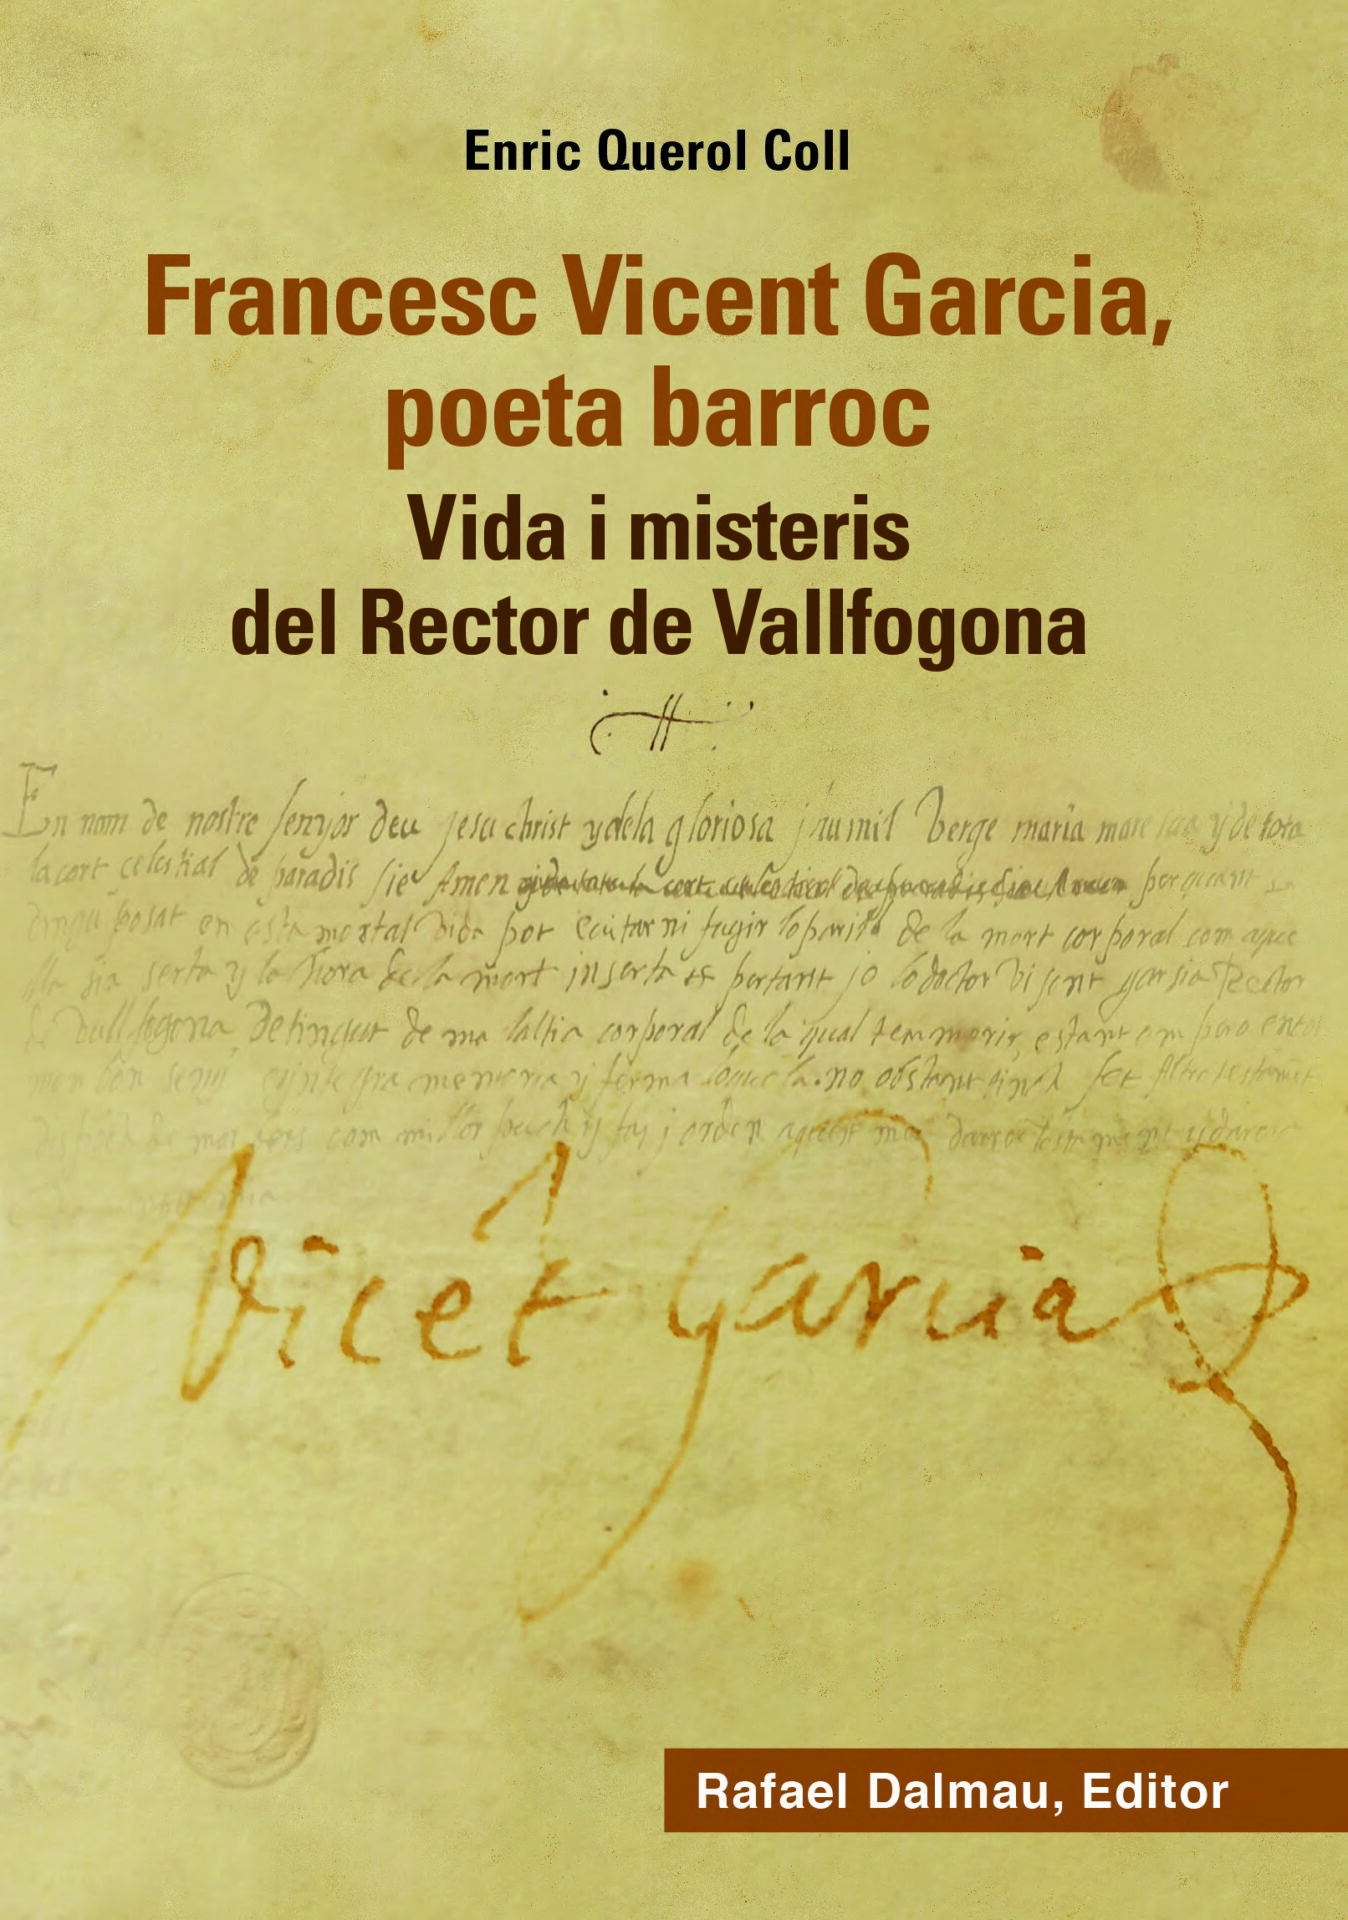 Enric Querol Coll
Francesc Vicent Garcia,
poeta barroc
Vida i misteris
del Rector de Vallfogona
En nom de nostre senyor deu Jesu christ y dela gloriosa j humil Verge maria mare sua y de tota
la cort celestial de paradis sie Amen per quant
posat en esta mortal vida pot evitar ni fugir lo perill de la mort corporal com aque
lla sia serta y la hora de la mort inserta es pertant jo lo doctor Visent garsia Rector
de Vallfogona detingut de malaltia corporal de la qual tem morir, estant em pero en tot
mon bon seny, e integra memoria y ferma loquela. no obstant tinch fet altre testament
com millor puch y faj j orden aquest meu darrer testament
Vicet Garcia
Rafael Dalmau, Editor